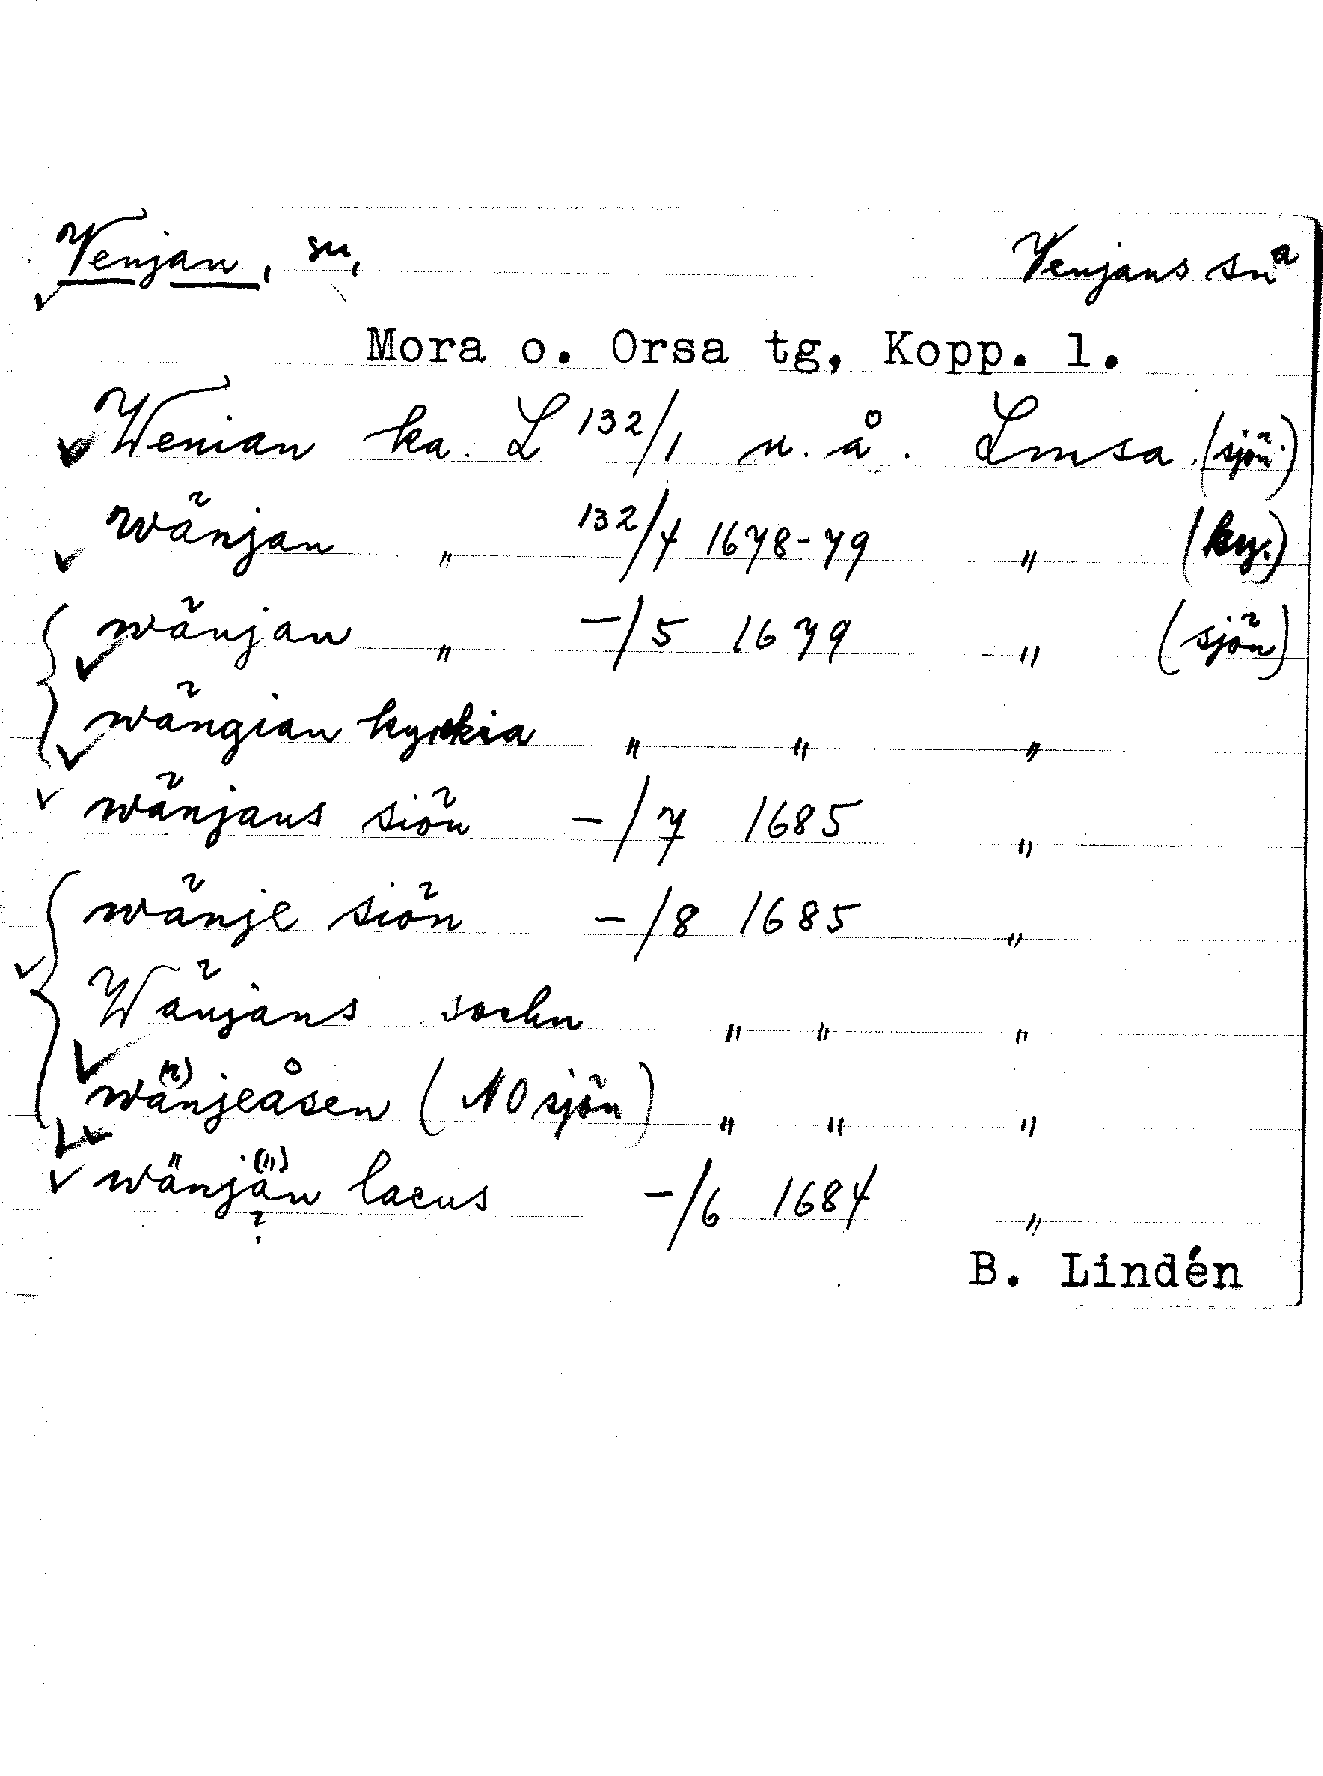 Venjan, sn, Venjans sn a
Mora o. Orsa tg, Kopp. l.
Wenian ka. L 132/1 u. å. Lmsa. (sjön.)
wänjan " 132/4 1678-79 " (by.)
wänjan " -/5 1679 " (sjön)
wängian kyrkia " " "
wänjans siön -/7 1685 "
wänje siön -/8 1685 "
Wänjans sochn " " "
wänjeåsen (NO sjön) " " "
wänjän lacus -/6 1684 "
(") ?
B. Lindén